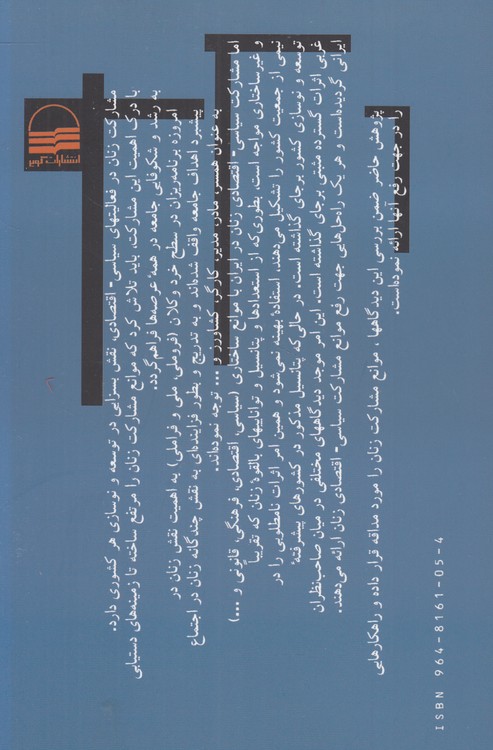 انتشارات کویر
مشارکت زنان در فعالیتهای سیاسی - اقتصادی، نقش بسزایی در توسعه و نوسازی هر کشوری دارد.
با درک اهمیت این مشارکت، باید تلاش کرد که موانع مشارکت زنان را مرتفع ساخته تا زمینه‌های دستیابی
به رشد و شکوفایی جامعه در همهٔ عرصه‌ها فراهم گردد.
امروزه برنامه‌ریزان در سطح خرد و کلان (فروملی، ملی و فراملی) به اهمیت نقش زنان در
پیشبرد اهداف جامعه واقف شده‌اند و به تدریج و بطور فزاینده‌ای به نقش چندگانه زنان در اجتماع
به عنوان همسر، مادر، مدیر، کارگر، کشاورز و ... توجه نموده‌اند.
اما مشارکت سیاسی - اقتصادی زنان در ایران با موانع ساختاری (سیاسی، اقتصادی، فرهنگی، قانونی و ...)
و غیرساختاری مواجه است، بطوری‌که از استعدادها و پتانسیل و تواناییهای بالقوهٔ زنان که تقریباً
نیمی از جمعیت کشور را تشکیل می‌دهند، استفادهٔ بهینه نمی‌شود و همین امر اثرات نامطلوبی را در
توسعه و نوسازی کشور برجای گذاشته است، در حالی‌که پتانسیل مذکور در کشورهای پیشرفتهٔ
غربی اثرات گسترده مثبتی برجای گذاشته است. این امر موجد دیدگاههای مختلفی در میان صاحب‌نظران
ایرانی گردیده‌است و هر یک راه‌حل‌هایی جهت رفع موانع مشارکت سیاسی - اقتصادی زنان ارائه می‌دهند.
پژوهش حاضر ضمن بررسی این دیدگاهها، موانع مشارکت زنان را مورد مداقه قرار داده و راهکارهایی
را در جهت رفع آنها ارائه نموده‌است.
ISBN 964-8161-05-4